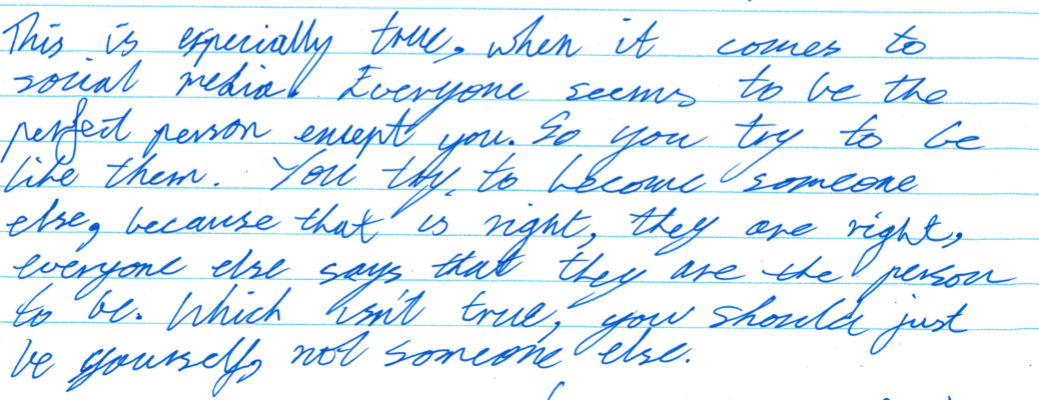 This is especially true, when it comes to
social media. Everyone seems to be the
perfect person except you. So you try to be
like them. You try, to become someone
else, because that is right, they are right,
everyone else says that they are the person
to be. Which isn't true, you should just
be yourself, not someone else.